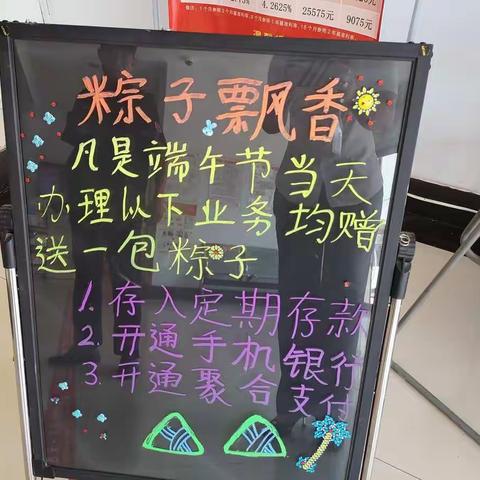 4.2625%
25575元
9075元
粽子飘香
凡是端午节当天
办理以下业务均赠
送一包粽子
1.存入定期存款
2.开通手机银行
3.开通聚合支付